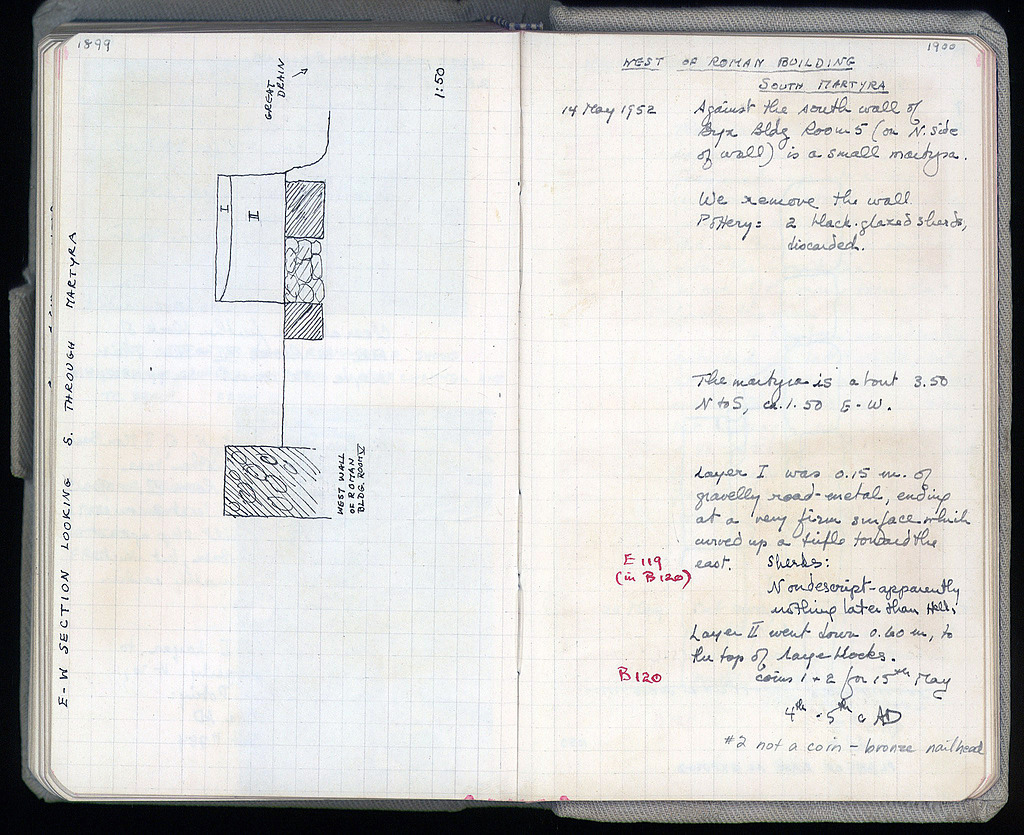 1899
GREAT
DRAIN
1:50
I
II
E-W SECTION LOOKING S. THROUGH MARTYRA
WEST WALL
OF ROMAN
BLDG. ROOM V
1900
WEST OF ROMAN BUILDING
SOUTH MARTYRA
14 May 1952
Against the south wall of
Byz Bldg Room 5 (on N. side
of wall) is a small martyra.
We remove the wall
Pottery: 2 black-glazed sherds,
discarded.
The martyra is about 3.50
N to S, ca. 1.50 E-W.
Layer I was 0.15 m. of
gravelly road-metal, ending
at a very firm surface which
curved up a trifle toward the
east. Sherds:
E 119
(in B120)
Nondescript-apparently
nothing later than Hell.
Layer II went down 0.60 m, to
the top of large blocks.
B120
coins 1+2 for 15th May
4th-5th c AD
#2 not a coin - bronze nailhead